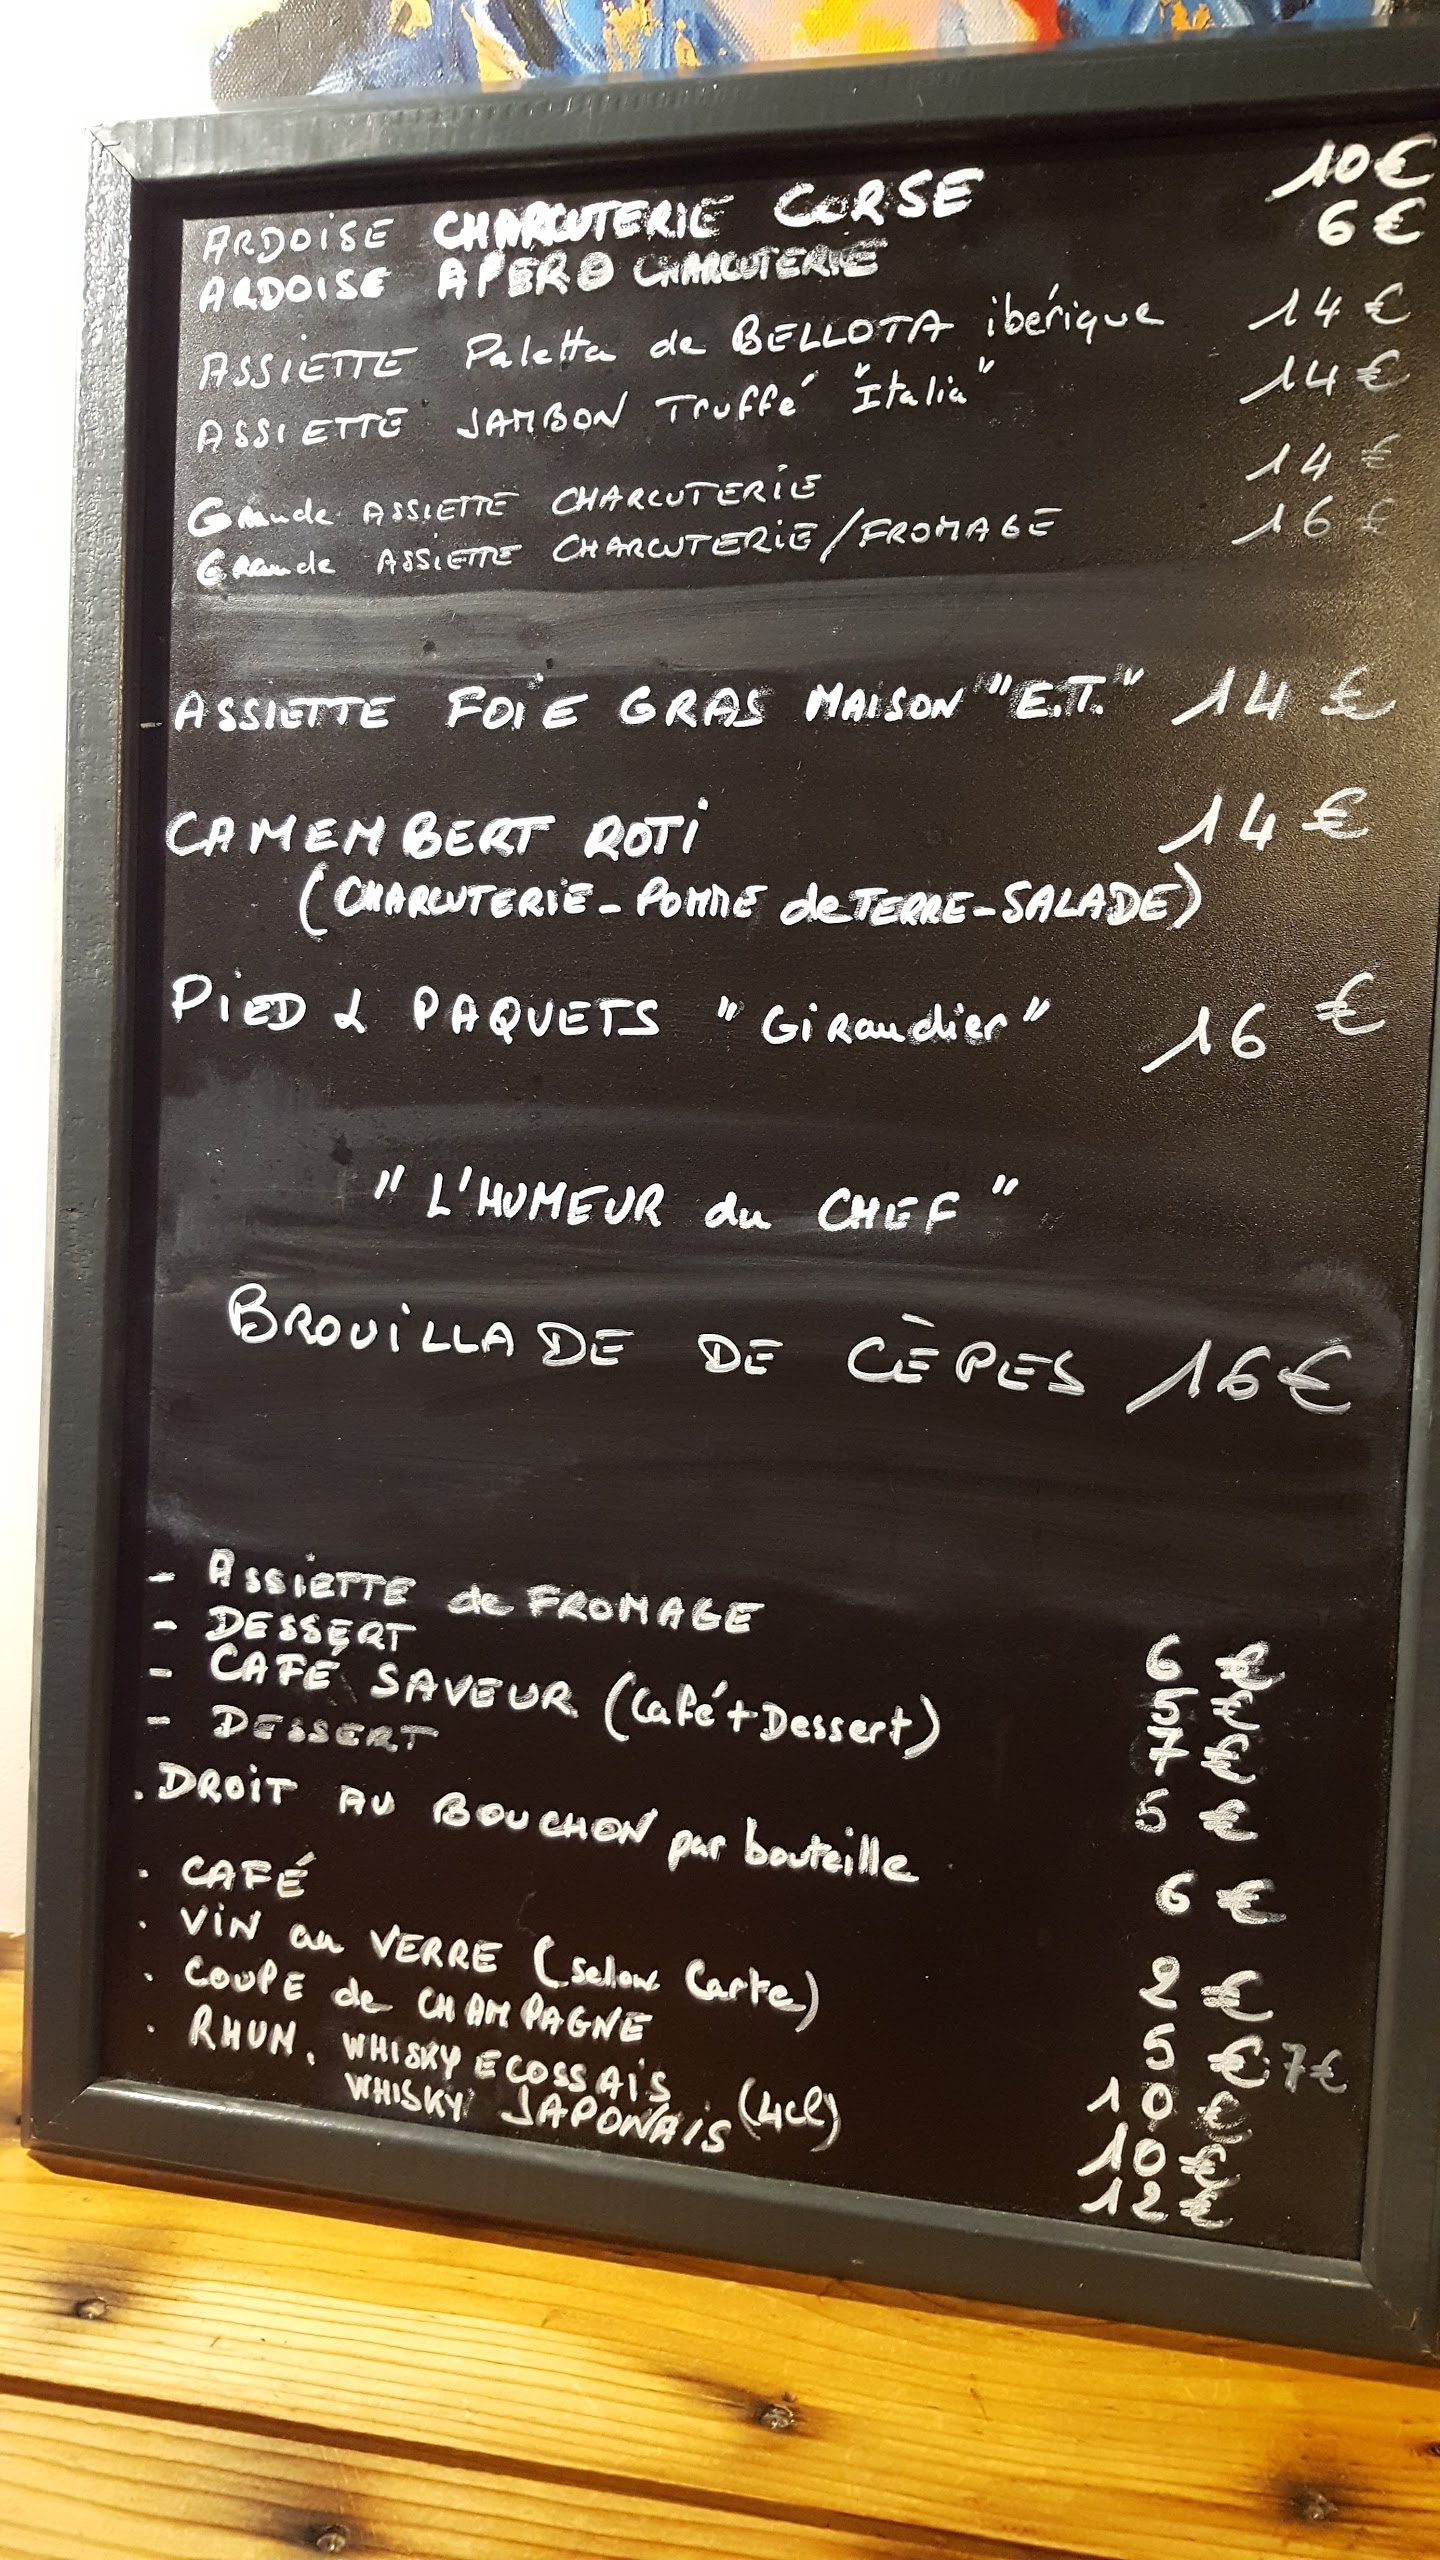 ARDOISE CHARCUTERIE CORSE 10€
ARDOISE APERO CHARCUTERIE 6€
ASSIETTE Paletta de BELLOTA ibérique 14€
ASSIETTE JAMBON Truffé "Italia" 14€
Grande ASSIETTE CHARCUTERIE 14€
Grande ASSIETTE CHARCUTERIE/FROMAGE 16€
- ASSIETTE FOIE GRAS MAISON "E.T." 14€
CAMEMBERT ROTI 14€
(CHARCUTERIE - POMME de TERRE - SALADE)
PIED & PAQUETS "Giraudier" 16€
"L'HUMEUR du CHEF"
BROUILLADE DE CÈPES 16€
- ASSIETTE de FROMAGE 6€
- DESSERT 5€
- CAFÉ SAVEUR (Café+Dessert) 7€
- DESSERT 5€
. DROIT AU BOUCHON par bouteille 6€
. CAFÉ 2€
. VIN au VERRE (selon Carte) 5€.7€
. COUPE de CHAMPAGNE 10€
. RHUM. WHISKY ECOSSAIS 10€
WHISKY JAPONAIS (4cl) 12€